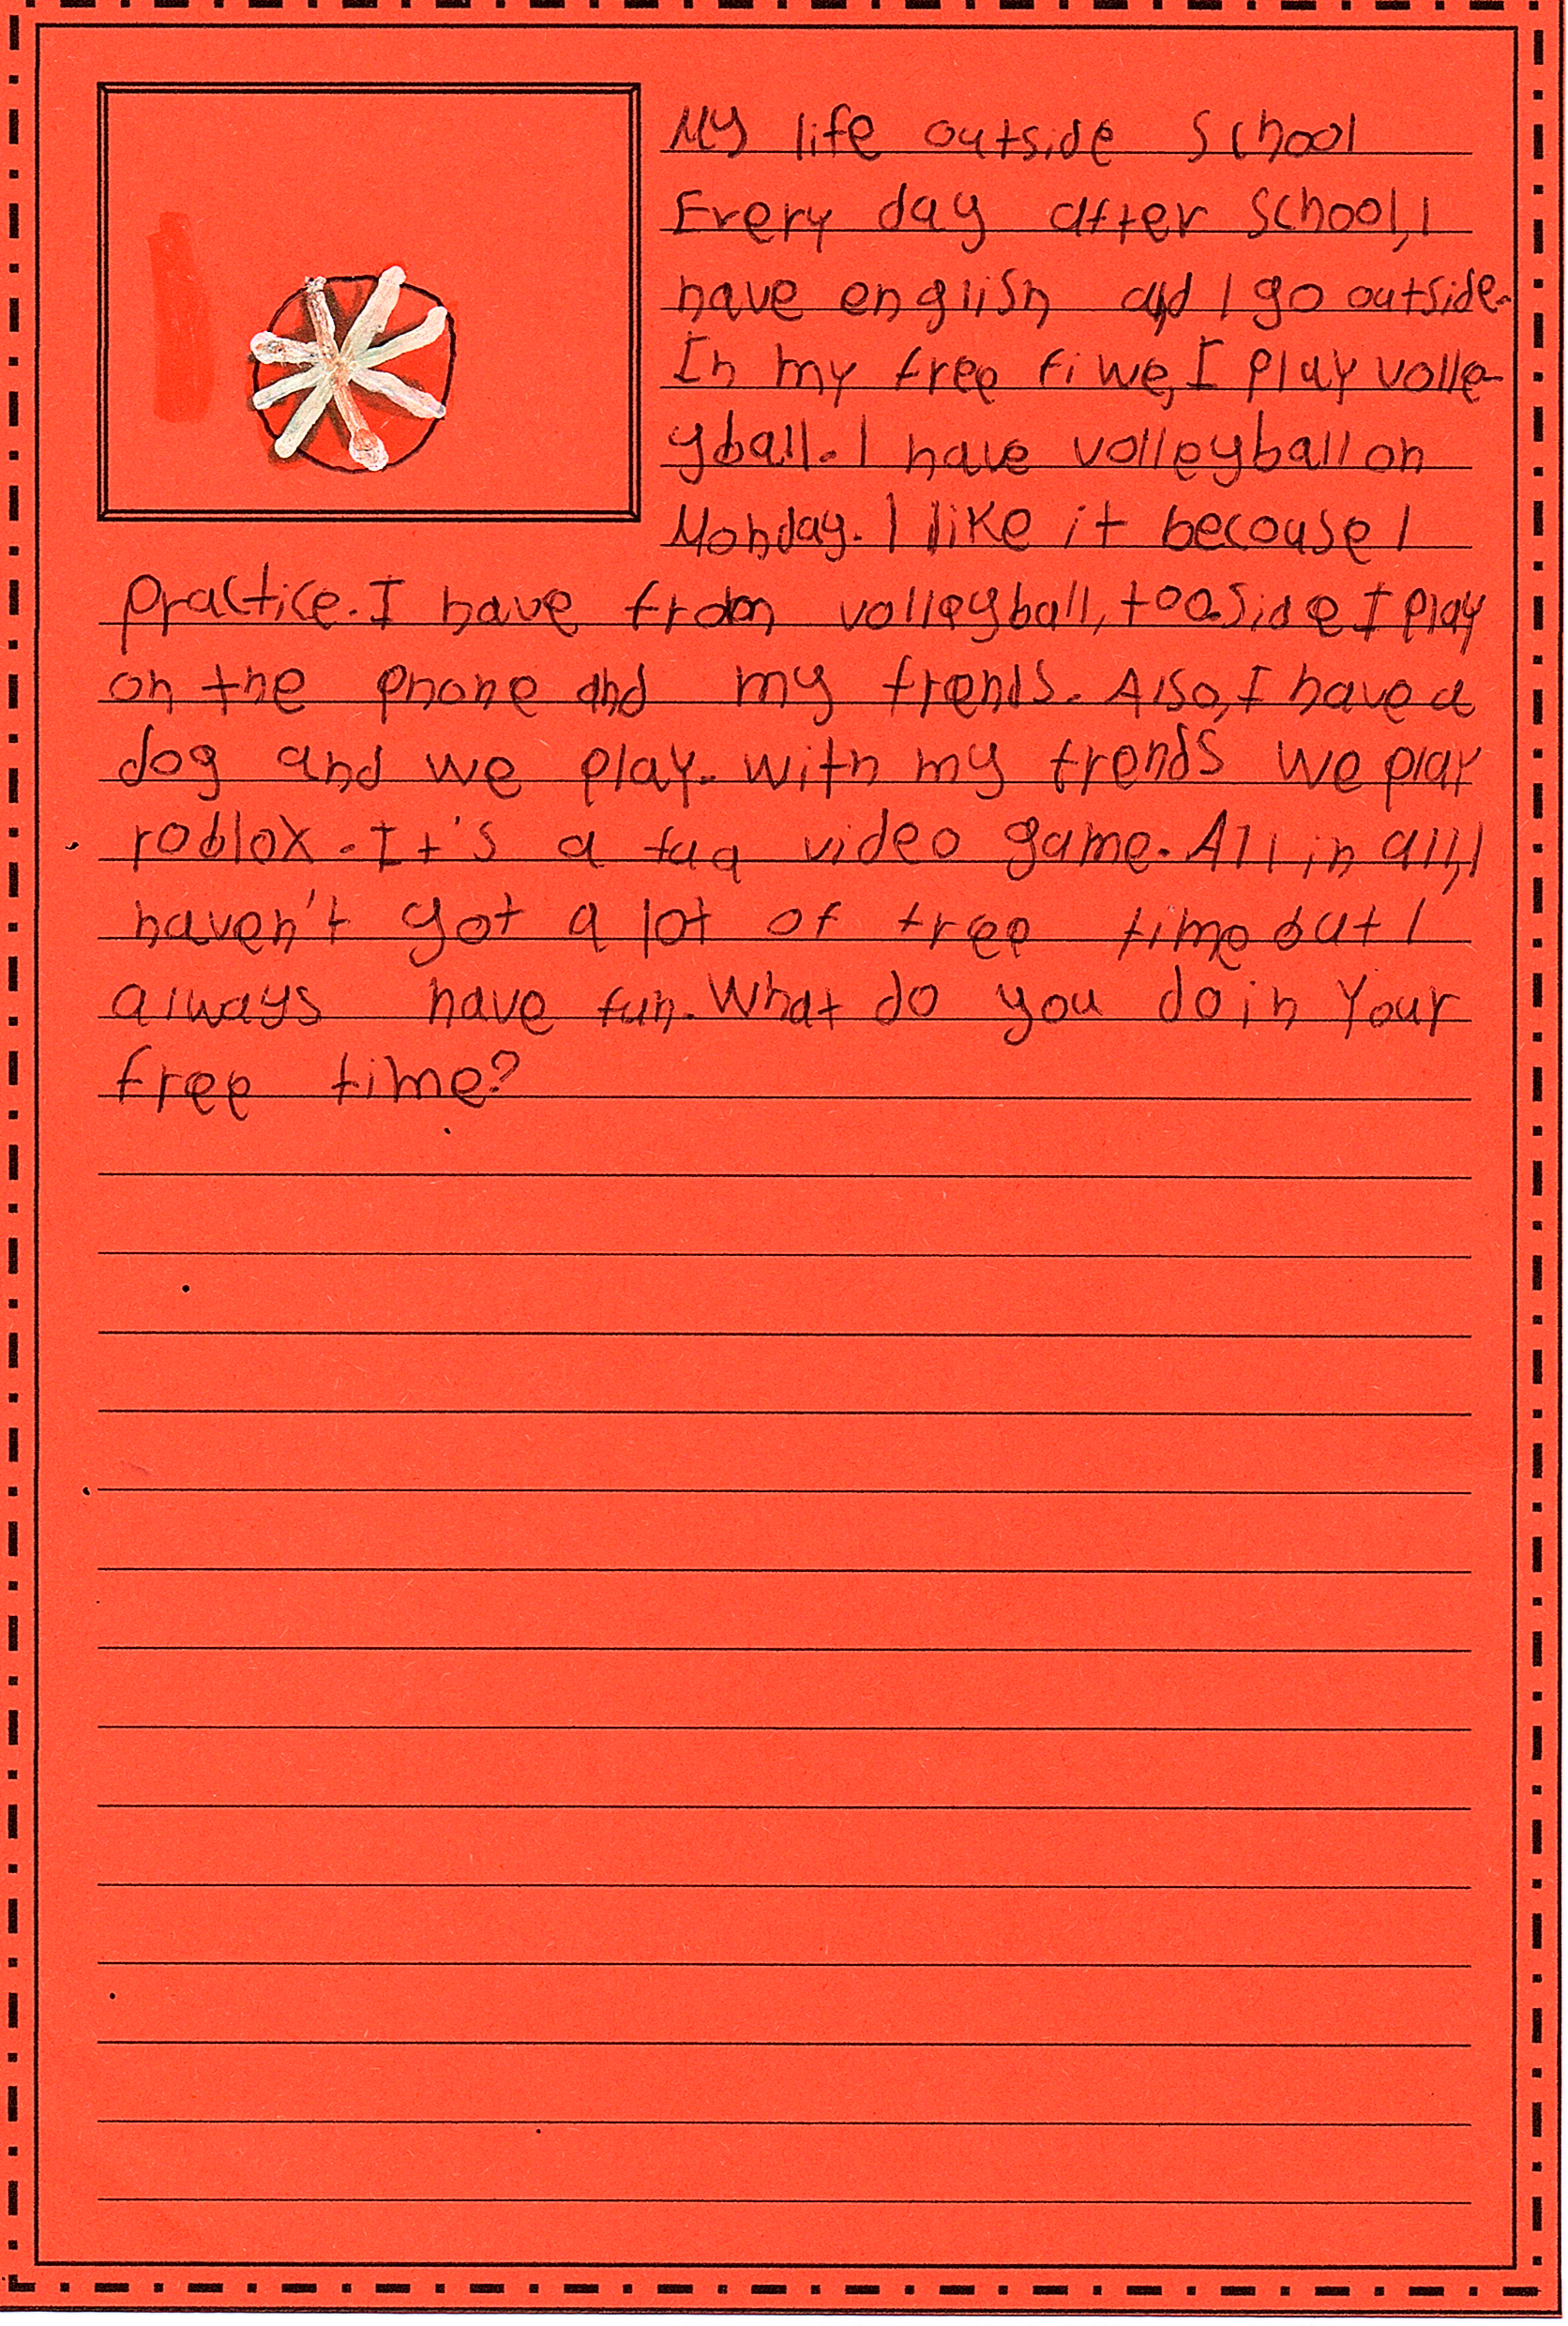 My life outside school
Every day after school, I
have english and I go outside.
In my free fiwe, I play volle-
yball. I have volleyball on
Monday. I like it becouse I
practice. I have from volleyball, too. I play
on the phone and my frends. Also, I have a
dog and we play. with my frends we play
roblox. It's a video game. All in all, I
haven't got a lot of free time but I
always have fun. What do you do in Your
free time?